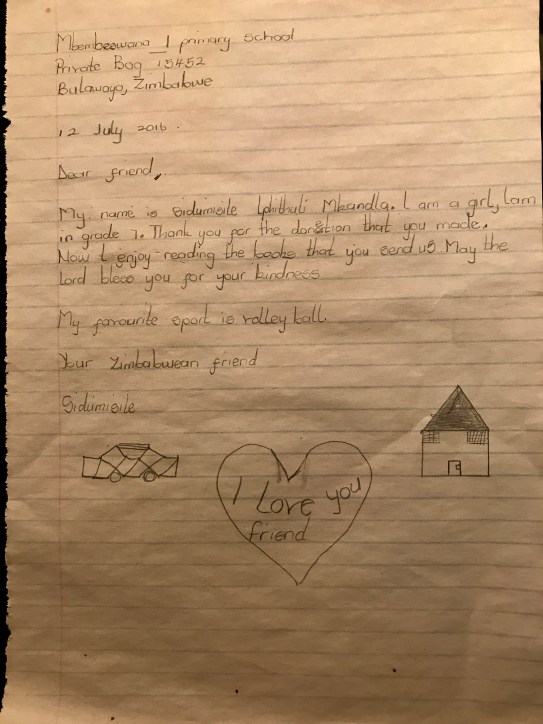 Mbembeswana 1 primary school
Private Bag 15452
Bulawayo, Zimbabwe
12 July 2016.
Dear friend,
My name is Sidumisile Iphithuli Mkandla. I am a girl, I am
in grade 7. Thank you for the donation that you made.
Now I enjoy reading the books that you send us. May the
Lord bless you for your kindness
My favourite sport is volley ball.
Your Zimbabwean friend
Sidumisile
I Love you
friend